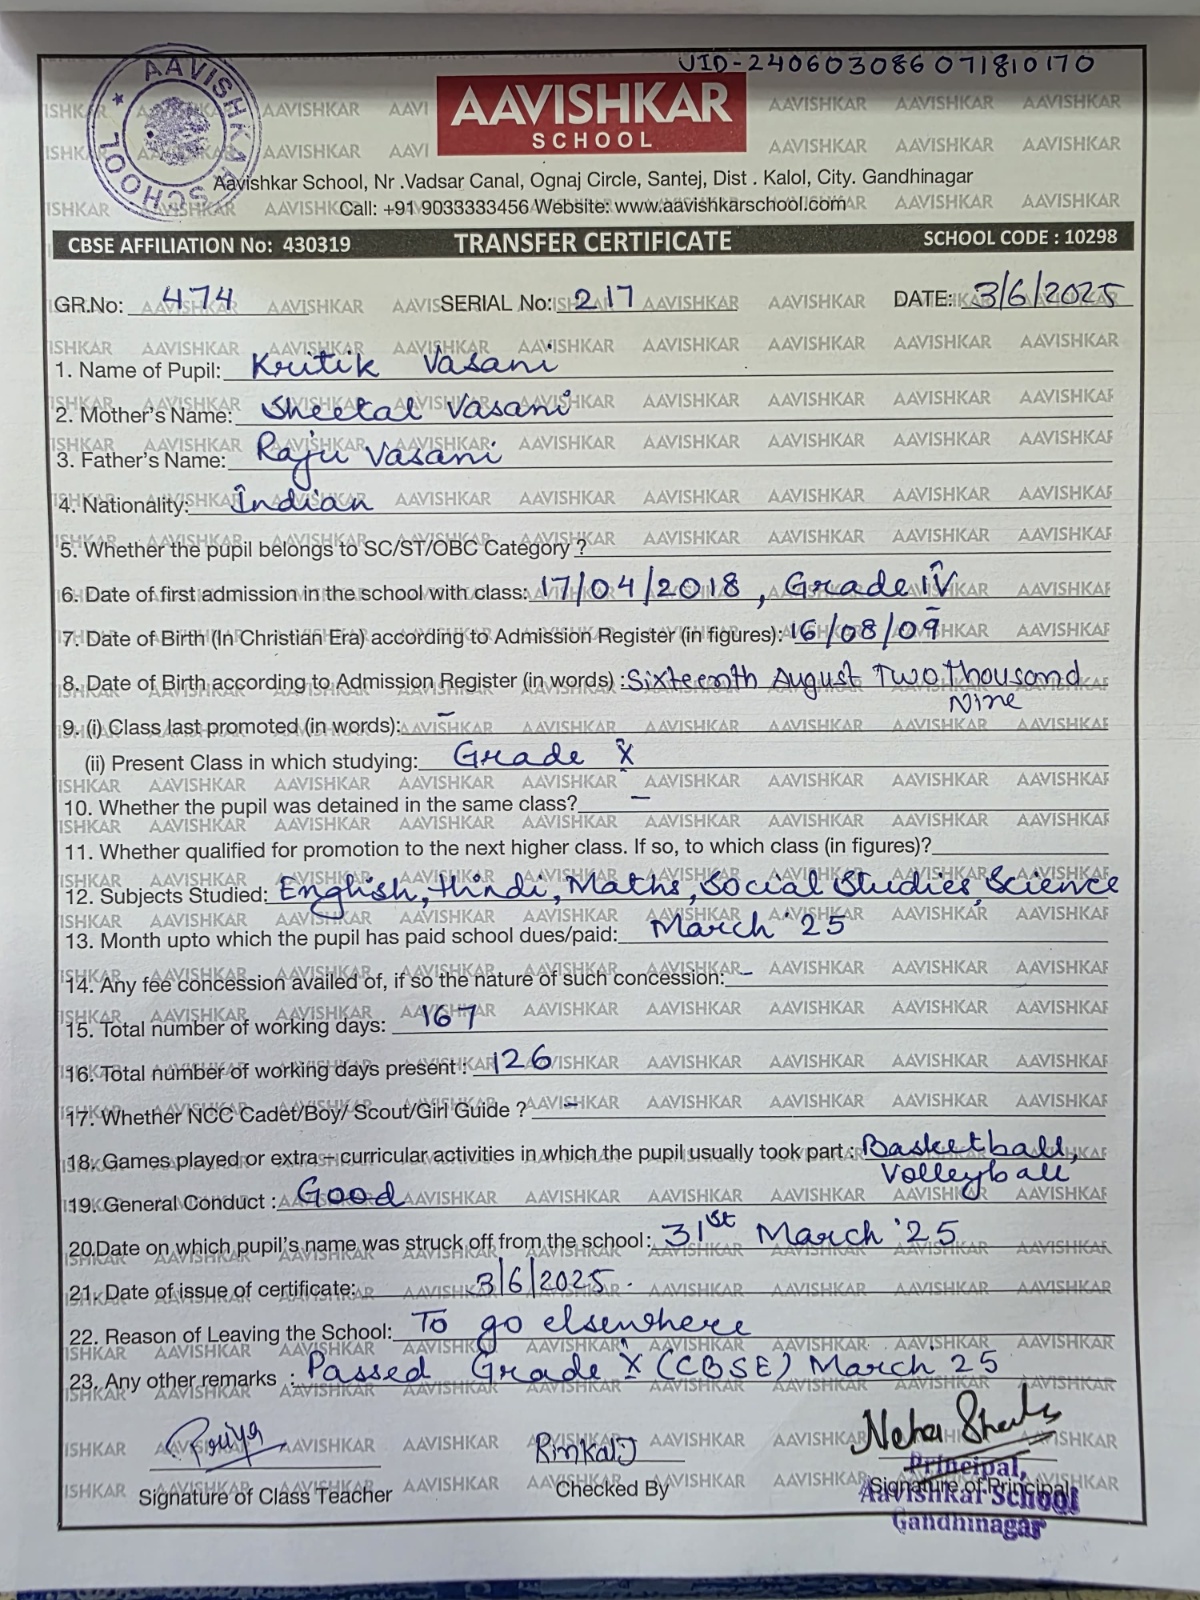 UID-240603086071810170
AAVISHKAR SCHOOL
AAVISHKAR
SCHOOL
Aavishkar School, Nr .Vadsar Canal, Ognaj Circle, Santej, Dist . Kalol, City. Gandhinagar
Call: +91 9033333456 Website: www.aavishkarschool.com
CBSE AFFILIATION No: 430319 TRANSFER CERTIFICATE SCHOOL CODE : 10298
GR.No: 474 SERIAL No: 217 DATE: 3/6/2025
1. Name of Pupil: Kritik Vasani
2. Mother's Name: Sheetal Vasani
3. Father's Name: Raju Vasani
4. Nationality: Indian
5. Whether the pupil belongs to SC/ST/OBC Category ?
6. Date of first admission in the school with class: 17/04/2018, Grade IV
7. Date of Birth (In Christian Era) according to Admission Register (in figures): 16/08/09
8. Date of Birth according to Admission Register (in words) : Sixteenth August Two thousand
Nine
9. (i) Class last promoted (in words): -
(ii) Present Class in which studying: Grade X
10. Whether the pupil was detained in the same class? -
11. Whether qualified for promotion to the next higher class. If so, to which class (in figures)?
12. Subjects Studied: English, Hindi, Maths, Social Studies, Science
13. Month upto which the pupil has paid school dues/paid: March '25
14. Any fee concession availed of, if so the nature of such concession: -
15. Total number of working days: 167
16. Total number of working days present : 126
17. Whether NCC Cadet/Boy/ Scout/Girl Guide ? -
18. Games played or extra – curricular activities in which the pupil usually took part : Basketball,
Volleyball
19. General Conduct : Good
20.Date on which pupil's name was struck off from the school: 31st March '25
21. Date of issue of certificate: 3/6/2025.
22. Reason of Leaving the School: To go elsewhere
23. Any other remarks : Passed Grade X (CBSE) March'25
Priya Neha
Signature of Class Teacher Checked By Signature of Principal
Principal,
Aavishkar School
Gandhinagar